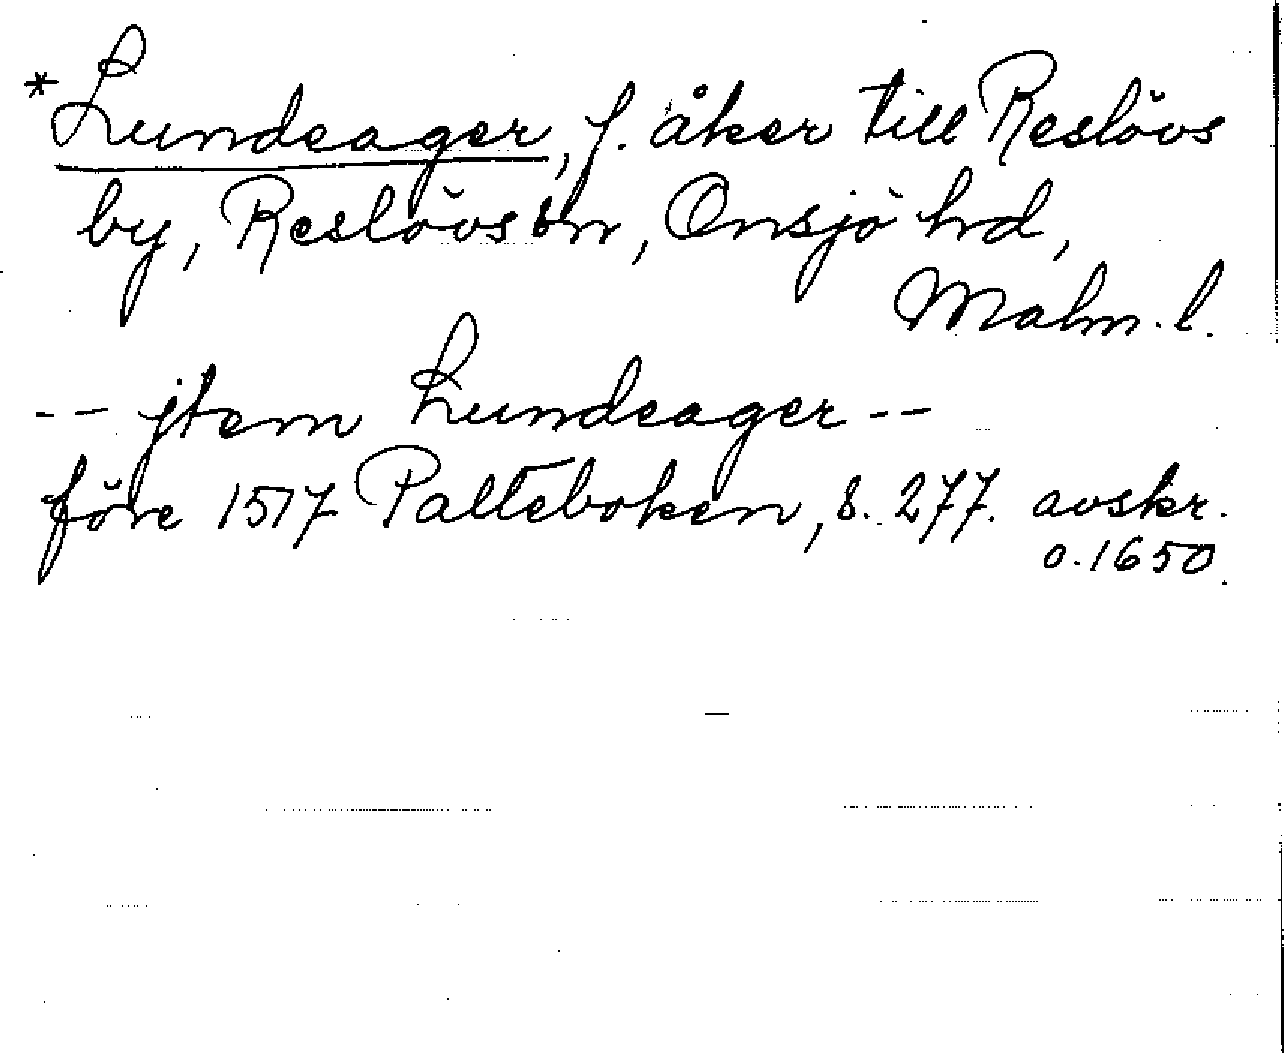 *Lundeager, f. åker till Reslövs
by, Reslövs sn, Onsjö hd,
Malm. l.
-- jtem Lundeager --
före 1517 Palteboken, s. 277. avskr.
o. 1650.